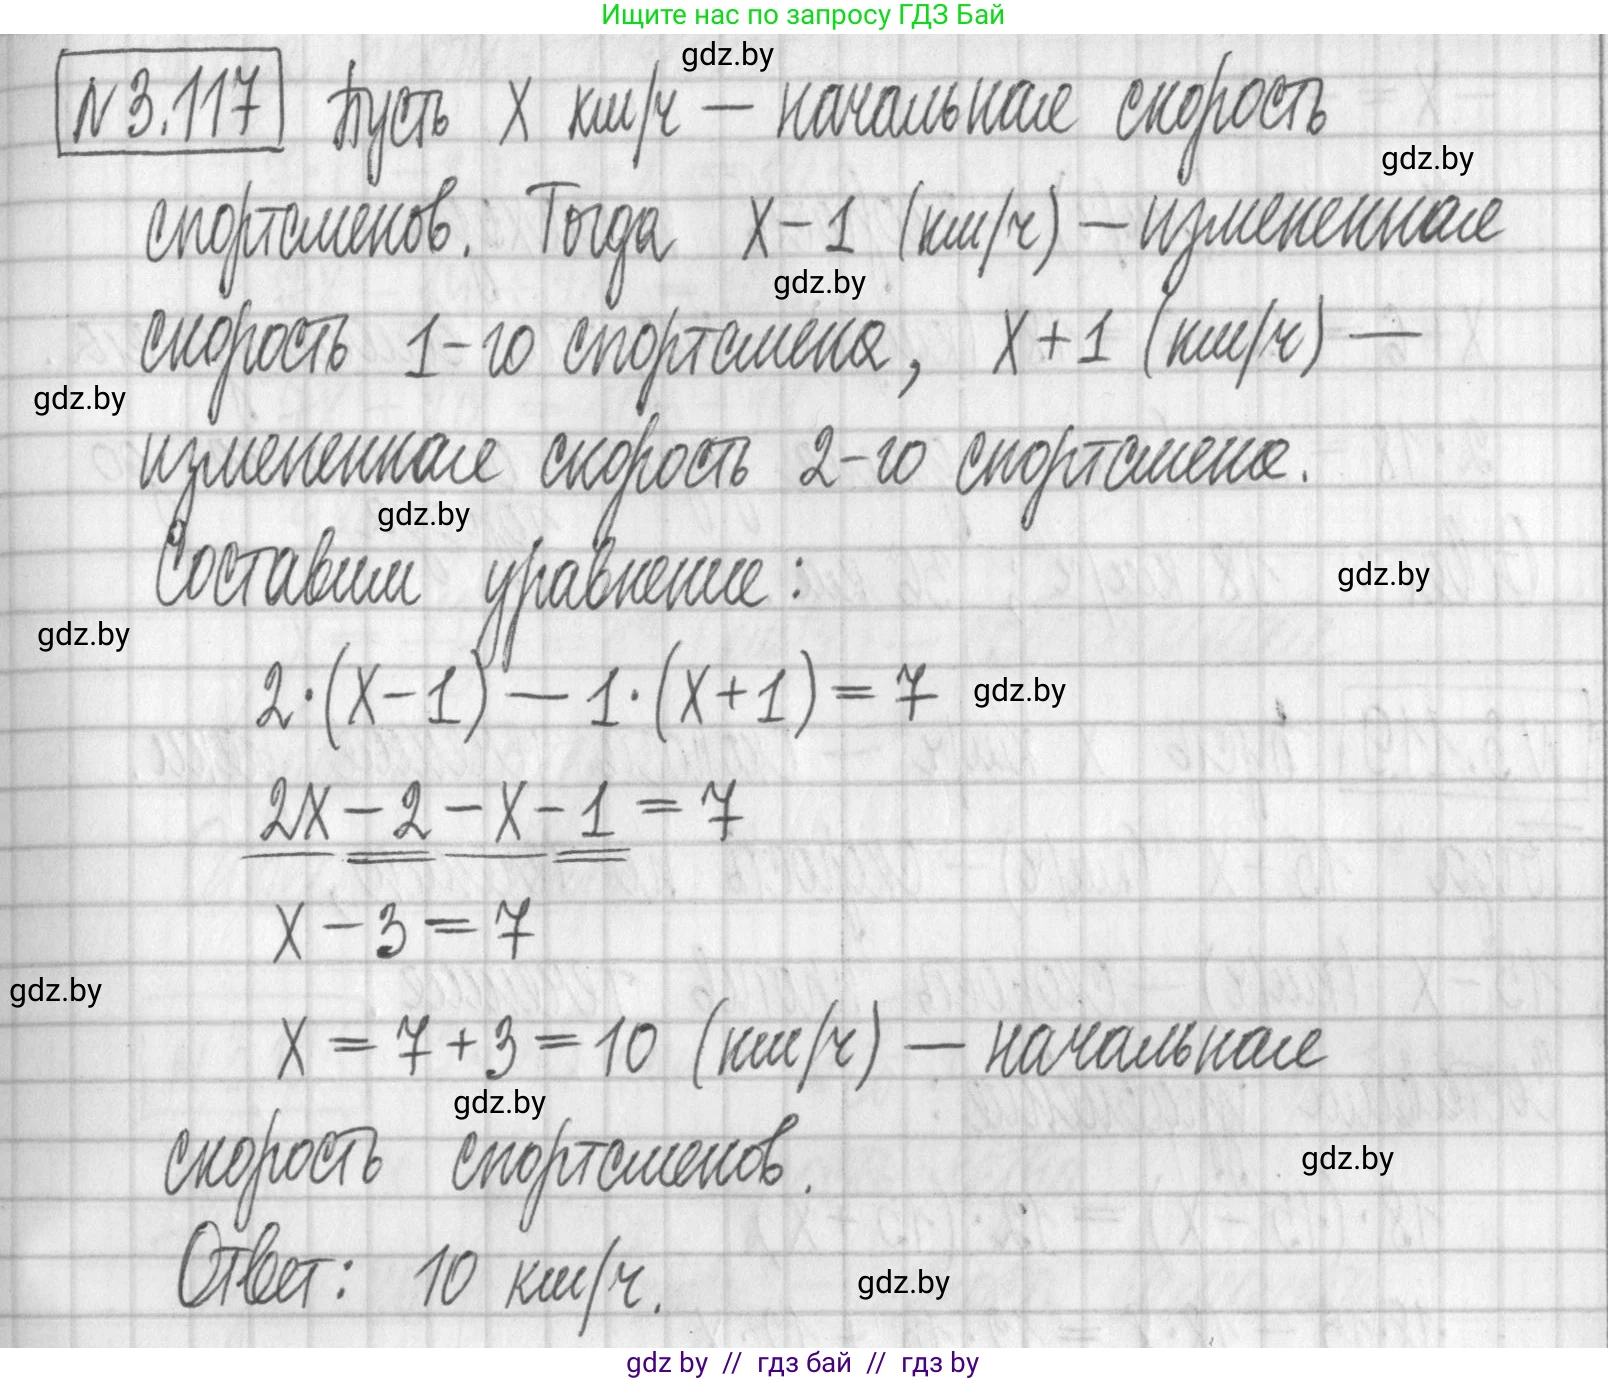 Ищите нас по запросу ГДЗ Бай
gdz.by
№3.117 Пусть x км/ч — начальная скорость
gdz.by
спортсменов. Тогда x-1 (км/ч) — измененная
gdz.by
скорость 1-го спортсмена, x+1 (км/ч) —
gdz.by
измененная скорость 2-го спортсмена.
gdz.by
Составим уравнение:
gdz.by
gdz.by
2·(x-1) — 1·(x+1) = 7
gdz.by
2x - 2 - x - 1 = 7
x - 3 = 7
gdz.by
x = 7 + 3 = 10 (км/ч) — начальная
gdz.by
скорость спортсменов.
gdz.by
Ответ: 10 км/ч.
gdz.by
gdz by // гдз бай // гдз by